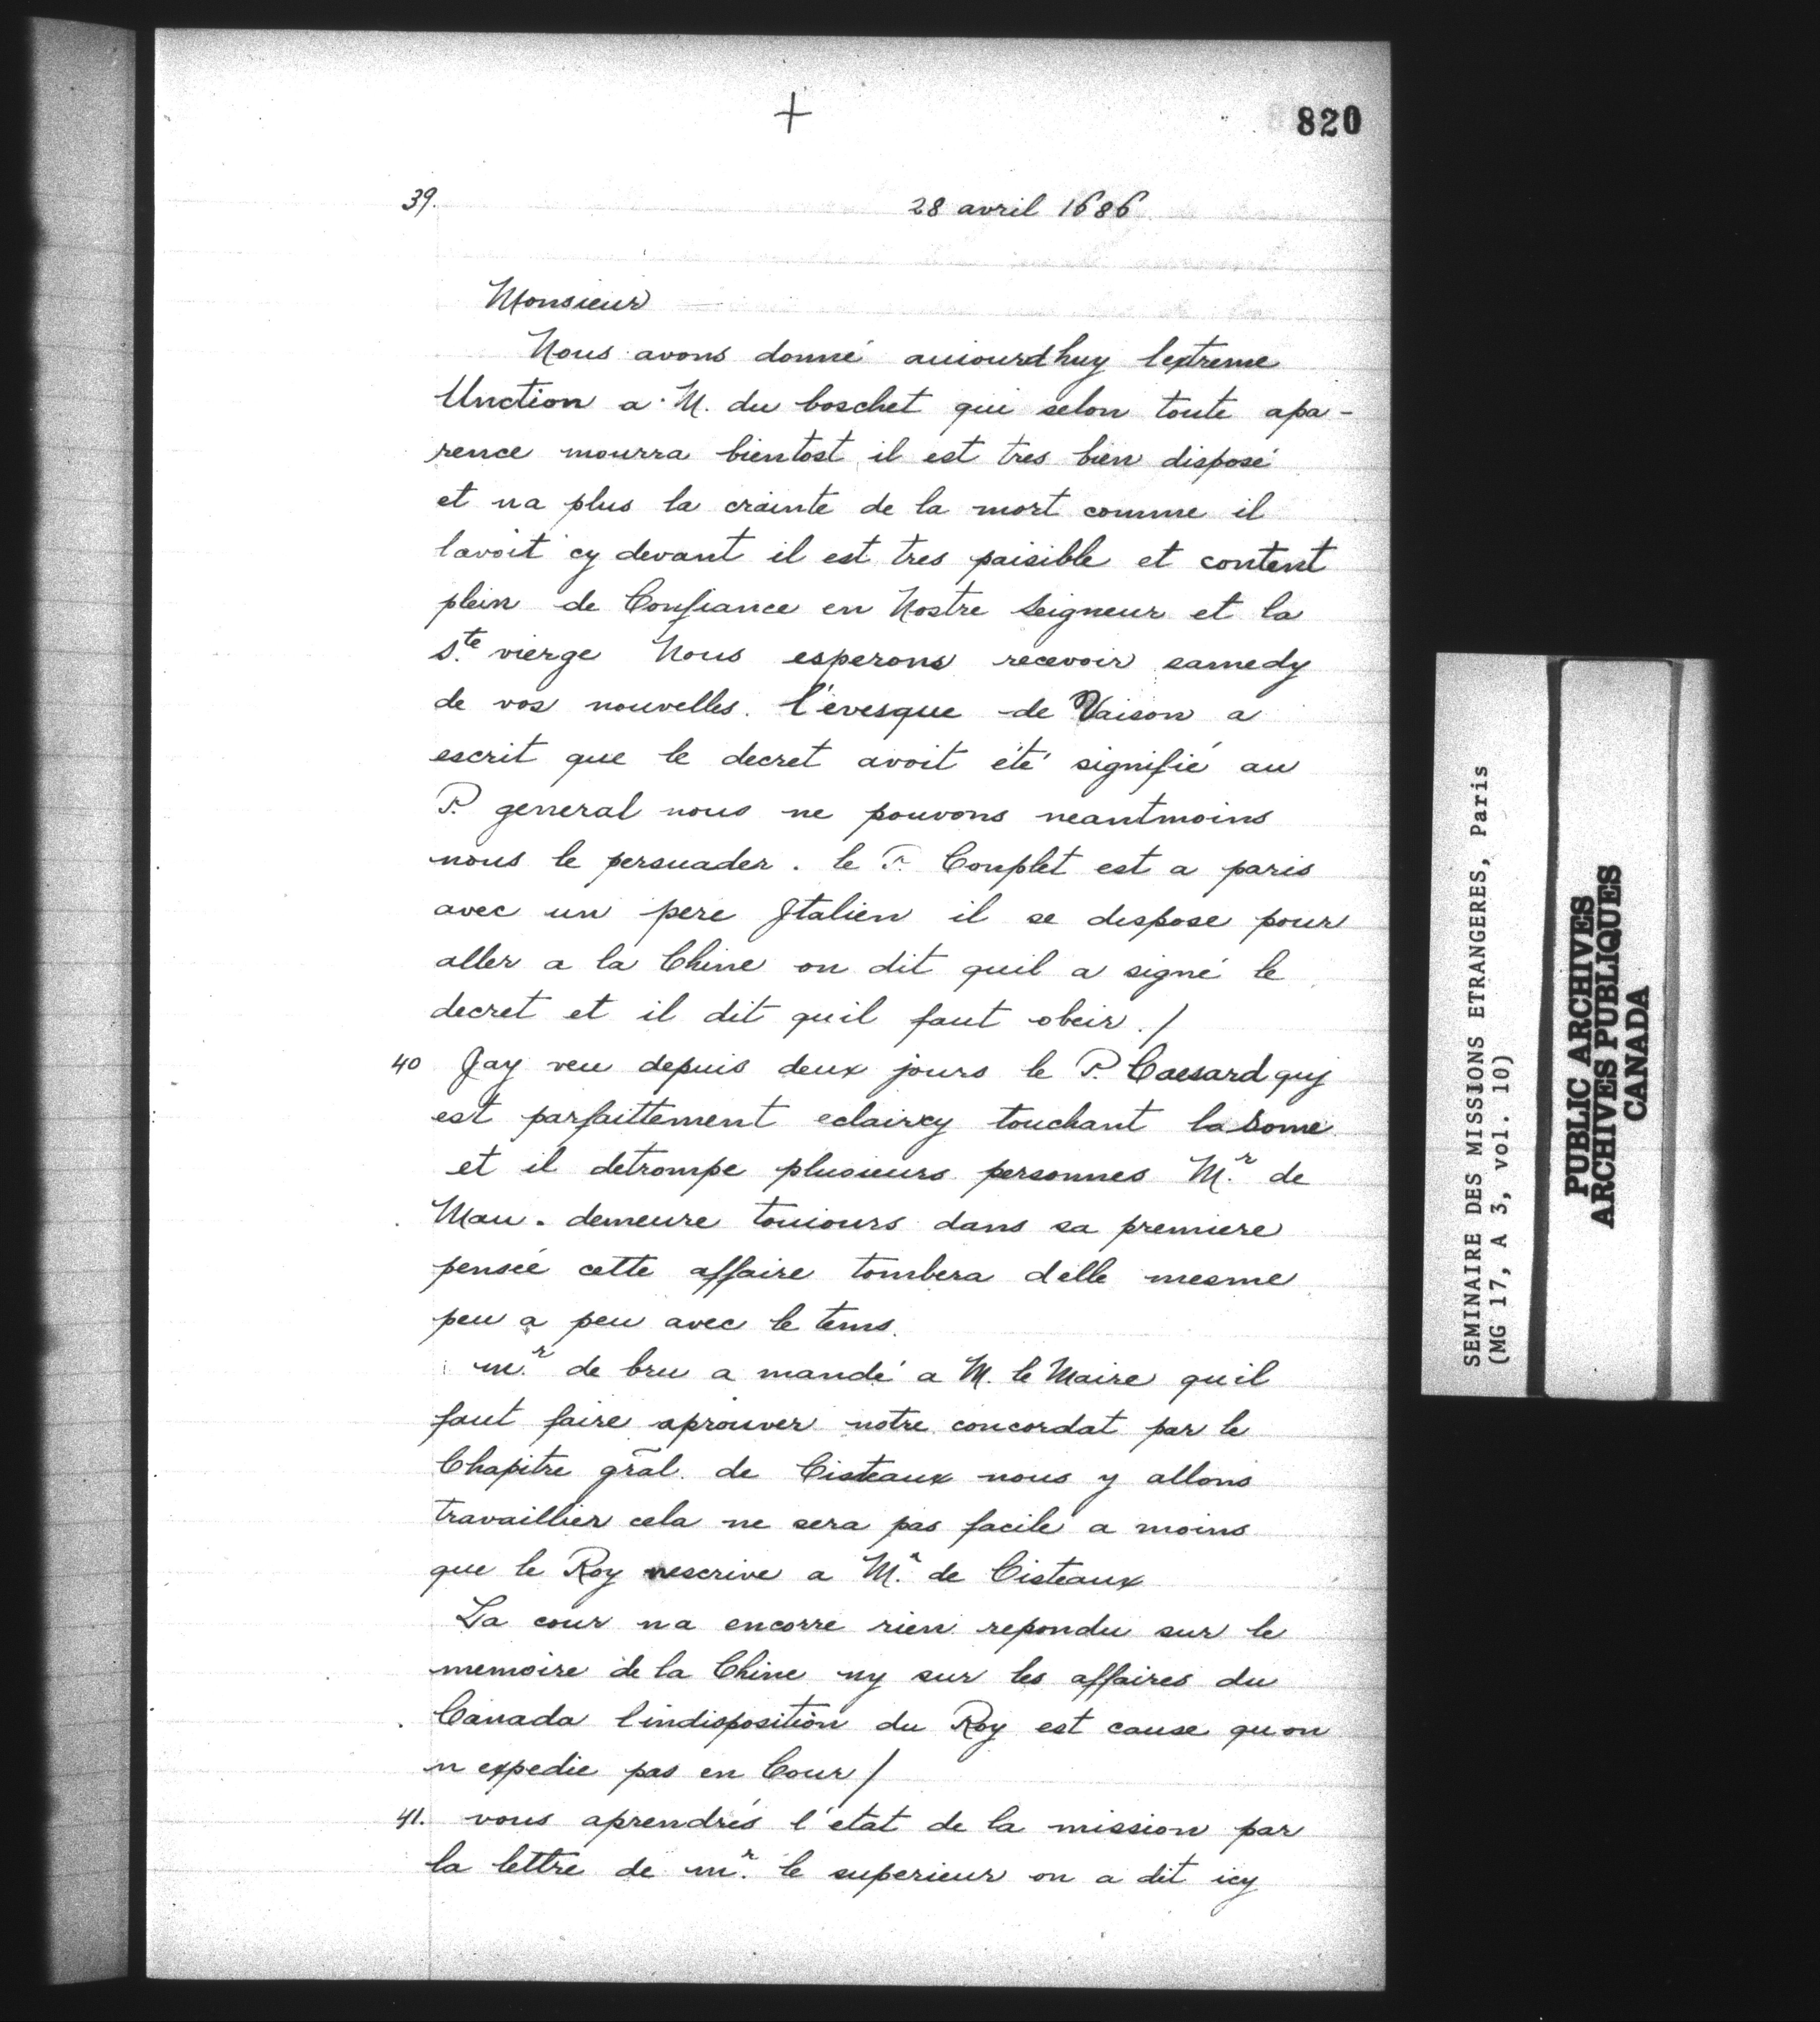 +
820
39.
28 avril 1686
Monsieur
Nous avons donné auiourdhuy lextreme
Unction a M. du boschet qui selon toute apa-
rence mourra bientost il est tres bien disposé
et na plus la crainte de la mort comme il
lavoit cy devant il est tres paisible et content
plein de Confiance en Nostre Seigneur et la
s.te vierge Nous esperons recevoir samedy
de vos nouvelles. l'évesque de Vaison a
escrit que le decret avoit été signifié au
P. general nous ne pouvons neantmoins
nous le persuader. le P. Couplet est a paris
avec un pere Italien il se dispose pour
aller a la Chine on dit quil a signé le
decret et il dit quil faut obeir./
40 Jay veu depuis deux jours le P. Caesard quy
est parfaittement eclaircy touchant la Some
et il detrompe plusieurs personnes M.r de
Mau. demeure touiours dans sa premiere
pensée cette affaire tombera delle mesme
peu a peu avec le tems.
m.r de bru a mandé a M. le Maire quil
faut faire aprouver notre concordat par le
Chapitre grãl. de Cisteaux nous y allons
travaillier cela ne sera pas facile a moins
que le Roy nescrive a M.r de Cisteaux
La cour na encorre rien repondu sur le
memoire de la Chine ny sur les affaires du
Canada l'indisposition du Roy est cause quon
n expedie pas en Cour/
41. vous aprendrés l'état de la mission par
la lettre de m.r le superieur on a dit icy
SEMINAIRE DES MISSIONS ETRANGERES, Paris
(MG 17, A 3, vol. 10)
PUBLIC ARCHIVES
ARCHIVES PUBLIQUES
CANADA